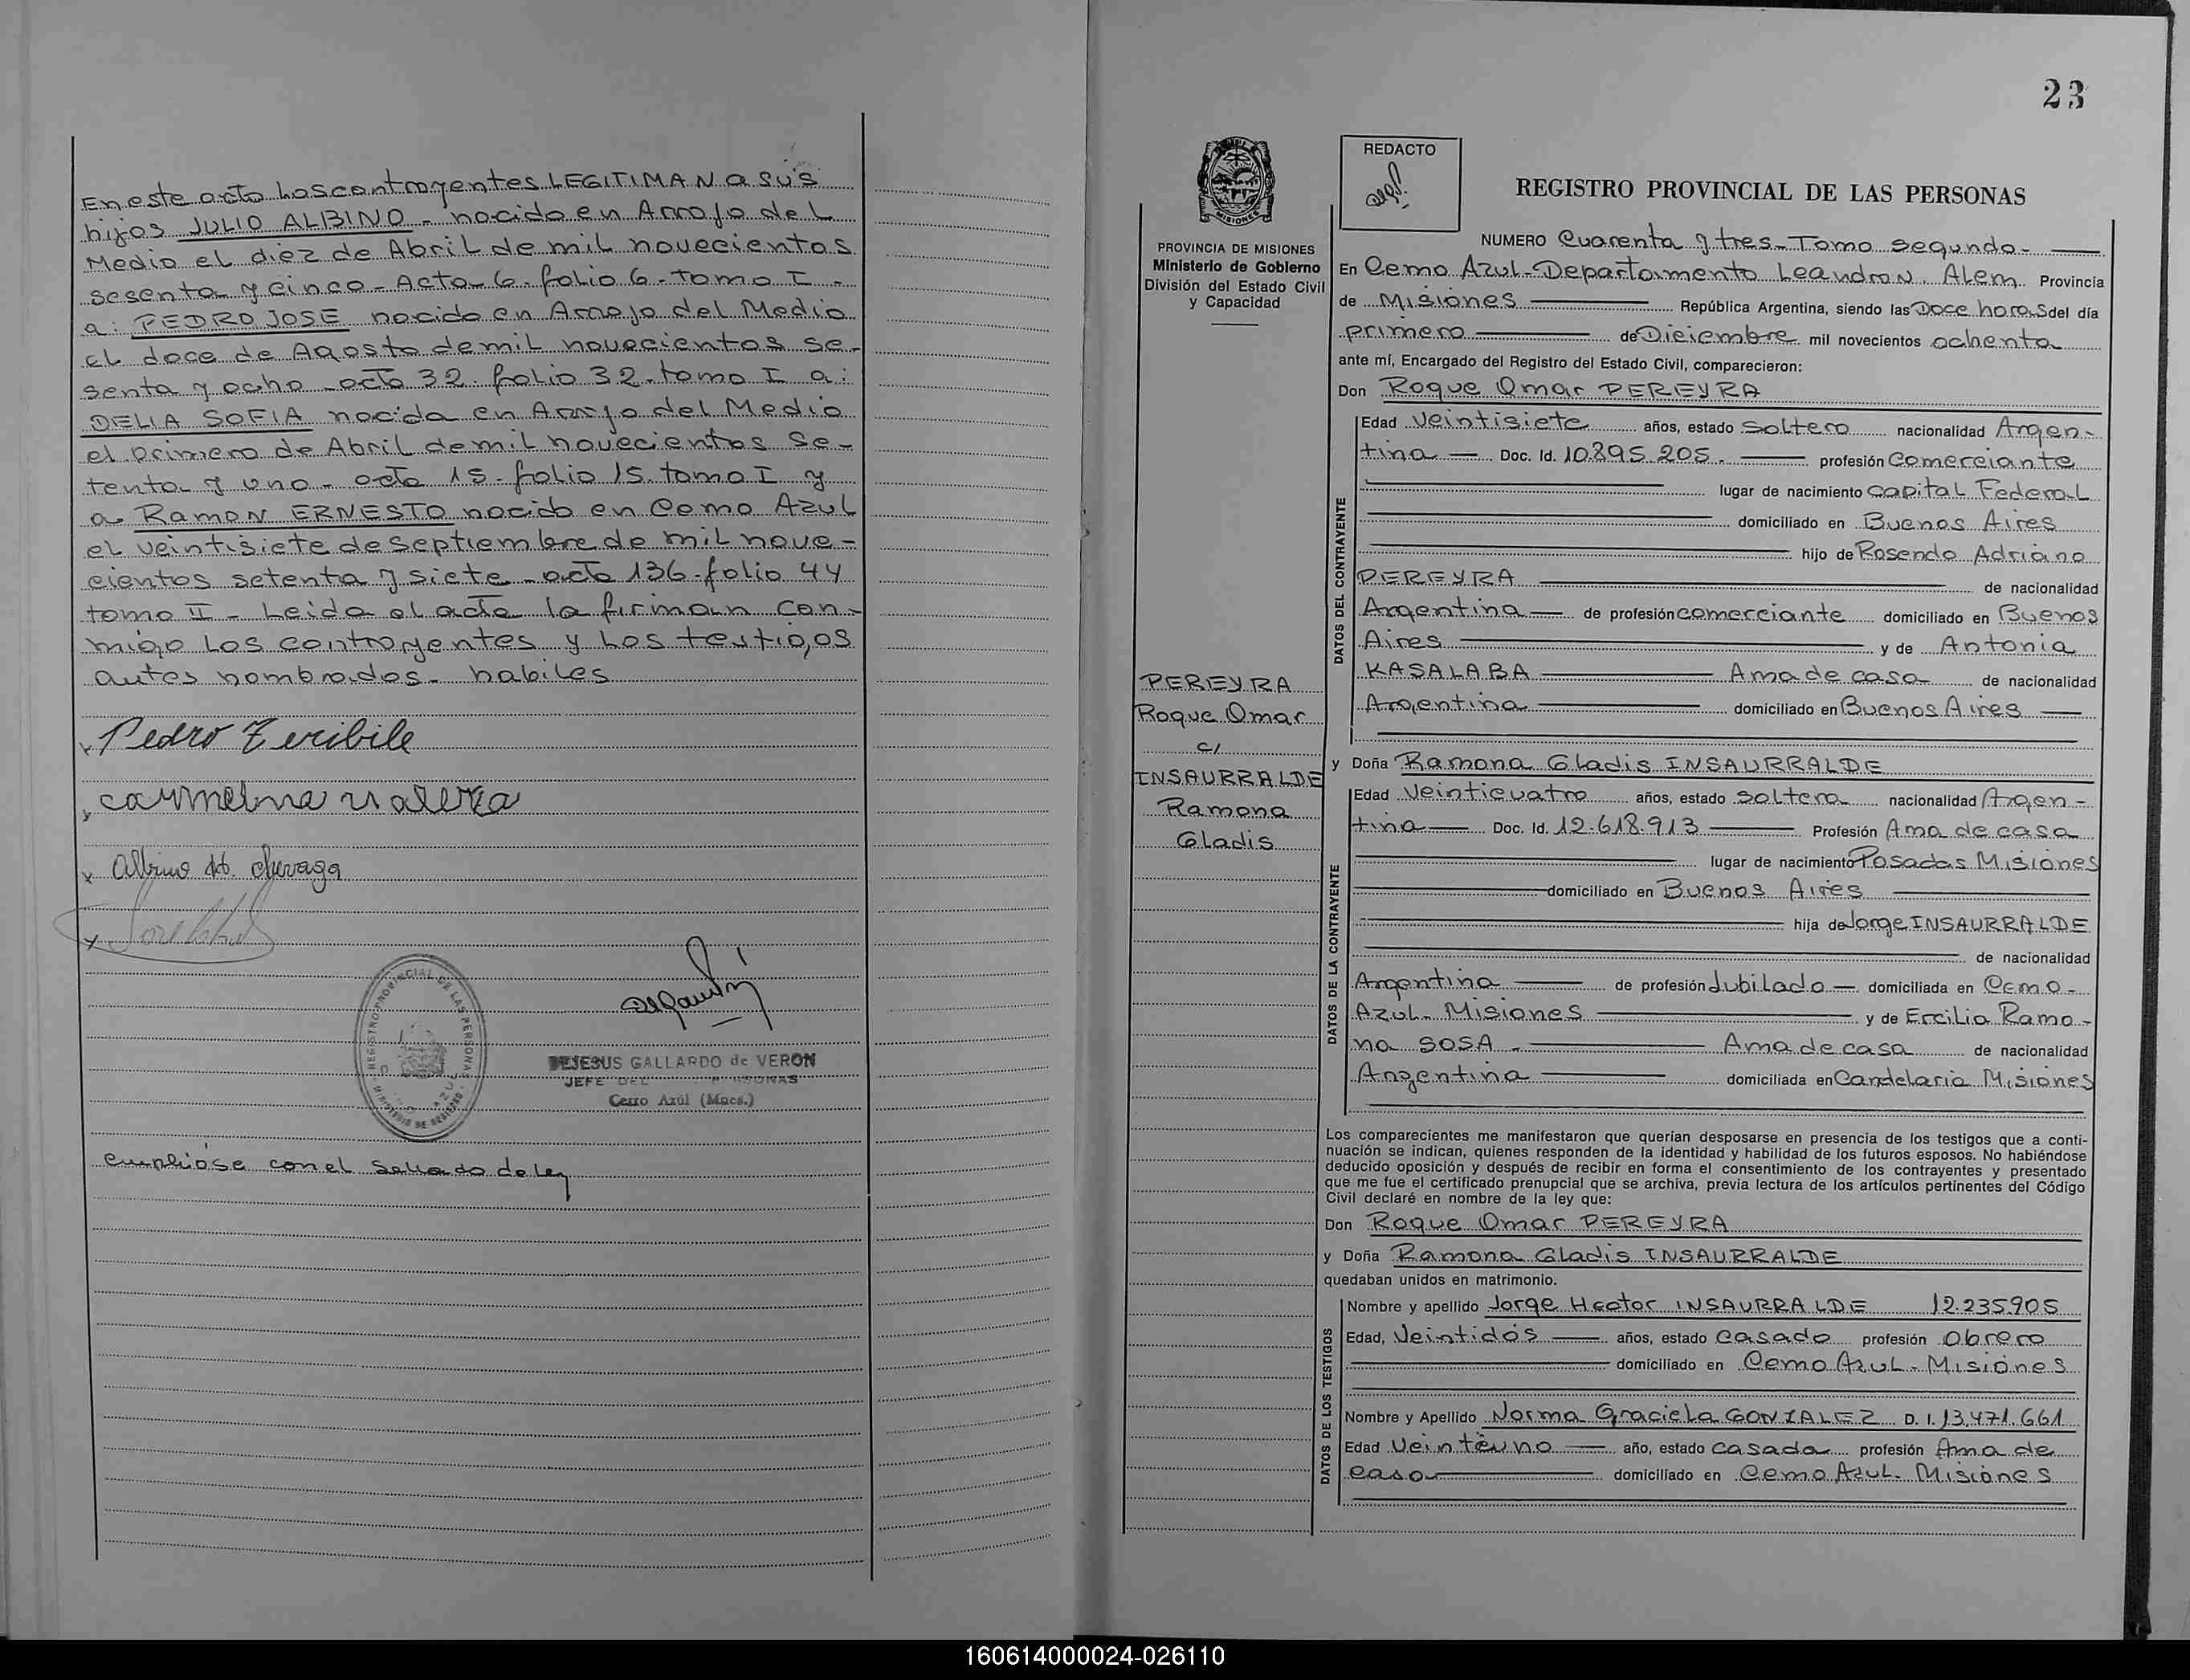 En este acto los contrayentes LEGITIMAN a sus
hijos JULIO ALBINO - nacido en Arroyo del
Medio el diez de Abril de mil novecientos
sesenta y cinco - Acta 6. folio 6 - tomo I -
a: PEDRO JOSE nacido en Arroyo del Medio
el doce de Agosto de mil novecientos se-
senta y ocho - acta 32. folio 32. tomo I a:
DELIA SOFIA nacida en Arroyo del Medio
el primero de Abril de mil novecientos se-
tenta y uno - acta 15 - folio 15. tomo I y
a RAMON ERNESTO nacido en Cerro Azul
el veintisiete de septiembre de mil nove-
cientos setenta y siete - acta 136 - folio 44
tomo II - Leida el acta la firman con-
migo los contrayentes y los testigos
antes nombrados - habiles
Pedro Teribile
x Albino
REGISTRO PROVINCIAL DE LAS PERSONAS
DEJESUS GALLARDO de VERON
JEFE DEL
Cerro Azul (Mnes.)
cumplióse con el sellado de ley
23
REDACTO
MISIONES
PROVINCIA DE MISIONES
Ministerio de Gobierno
División del Estado Civil
y Capacidad
PEREYRA
Roque Omar
c/
INSAURRALDE
Ramona
Gladis
REGISTRO PROVINCIAL DE LAS PERSONAS
NUMERO Cuarenta y tres - Tomo segundo -
En Cerro Azul - Departamento Leandro N. Alem Provincia
de Misiones República Argentina, siendo las Doce horas del día
primero de Diciembre mil novecientos ochenta
ante mí, Encargado del Registro del Estado Civil, comparecieron:
Don Roque Omar PEREYRA
DATOS DEL CONTRAYENTE
Edad Veintisiete años, estado soltero nacionalidad Argen-
tina Doc. Id. 10.895.205 - profesión comerciante
lugar de nacimiento capital Federal
domiciliado en Buenos Aires
hijo de Rosendo Adriano
PEREYRA de nacionalidad
Argentina de profesión comerciante domiciliado en Buenos
Aires y de Antonia
KASALABA Ama de casa de nacionalidad
Argentina domiciliado en Buenos Aires
y Doña Ramona Gladis INSAURRALDE
DATOS DE LA CONTRAYENTE
Edad Veinticuatro años, estado soltera nacionalidad Argen-
tina Doc. Id. 12.618.913 Profesión Ama de casa
lugar de nacimiento Posadas Misiones
domiciliado en Buenos Aires
hija de Jorge INSAURRALDE
de nacionalidad
Argentina de profesión Jubilado domiciliada en Cerro
Azul - Misiones y de Ercilia Ramo-
na SOSA - Ama de casa de nacionalidad
Argentina domiciliada en Candelaria Misiones
Los comparecientes me manifestaron que querían desposarse en presencia de los testigos que a conti-
nuación se indican, quienes responden de la identidad y habilidad de los futuros esposos. No habiéndose
deducido oposición y después de recibir en forma el consentimiento de los contrayentes y presentado
que me fue el certificado prenupcial que se archiva, previa lectura de los artículos pertinentes del Código
Civil declaré en nombre de la ley que:
Don Roque Omar PEREYRA
y Doña Ramona Gladis INSAURRALDE
quedaban unidos en matrimonio.
DATOS DE LOS TESTIGOS
Nombre y apellido Jorge Hector INSAURRALDE 12.235.905
Edad, Veintidós años, estado casado profesión Obrero
domiciliado en Cerro Azul - Misiones
Nombre y Apellido Norma Graciela GONZALEZ D. I. 13.471.661
Edad Veintiuno año, estado casada profesión Ama de
casa domiciliado en Cerro Azul - Misiones
160614000024-026110